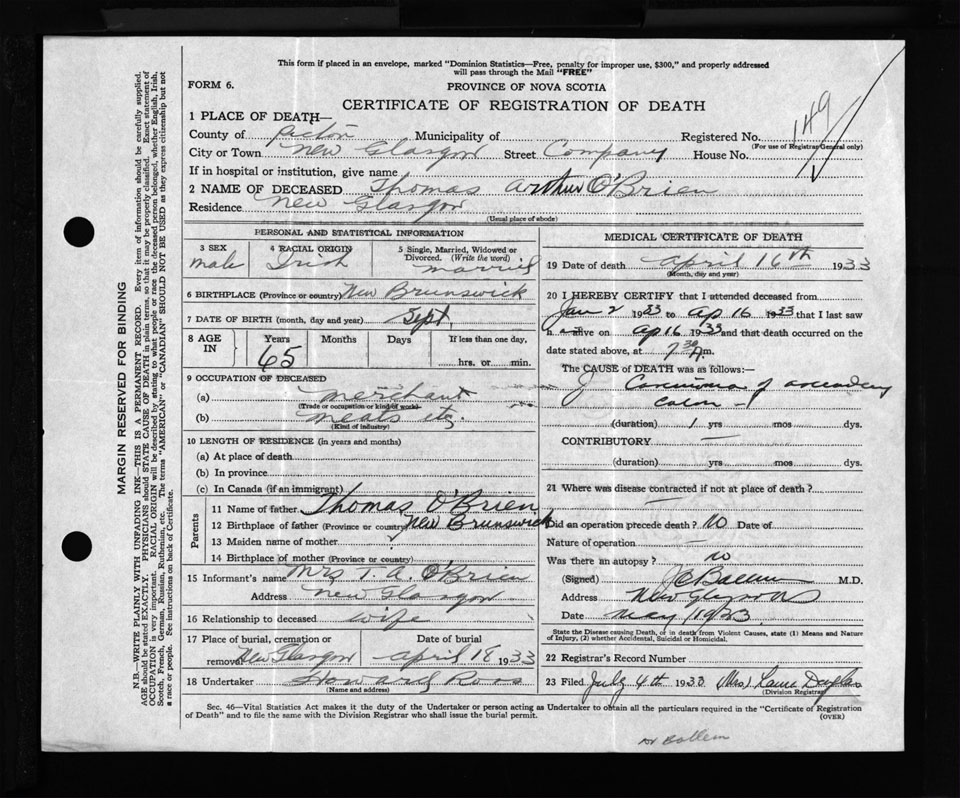 This form if placed in an envelope, marked "Dominion Statistics—Free, penalty for improper use, $300," and properly addressed
will pass through the Mail "FREE"
FORM 6.
PROVINCE OF NOVA SCOTIA
CERTIFICATE OF REGISTRATION OF DEATH
149
1 PLACE OF DEATH—
County of Pictou Municipality of Registered No.
(For use of Registrar General only)
City or Town New Glasgow Street Company House No.
If in hospital or institution, give name
2 NAME OF DECEASED Thomas Arthur O'Brien
Residence New Glasgow
(Usual place of abode)
PERSONAL AND STATISTICAL INFORMATION
3 SEX 4 RACIAL ORIGIN 5 Single, Married, Widowed or Divorced. (Write the word)
male Irish married
6 BIRTHPLACE (Province or country) New Brunswick
7 DATE OF BIRTH (month, day and year) Sept.
8 AGE IN Years Months Days If less than one day,
65 hrs. or min.
9 OCCUPATION OF DECEASED
(a) merchant
(Trade or occupation or kind of work)
(b) meats etc.
(Kind of industry)
10 LENGTH OF RESIDENCE (in years and months)
(a) At place of death
(b) In province
(c) In Canada (if an immigrant)
Parents
11 Name of father Thomas O'Brien
12 Birthplace of father (Province or country) New Brunswick
13 Maiden name of mother
14 Birthplace of mother (Province or country)
15 Informant's name Mrs T. A. O'Brien
Address New Glasgow
16 Relationship to deceased wife
17 Place of burial, cremation or removal Date of burial
New Glasgow April 18 1933
18 Undertaker Howard Ross
(Name and address)
MEDICAL CERTIFICATE OF DEATH
19 Date of death April 16th 1933
(Month, day and year)
20 I HEREBY CERTIFY that I attended deceased from
Jan 2 1933 to Ap 16 1933 that I last saw
h alive on Ap 16 1933 and that death occurred on
date stated above, at 7 30 m.
The CAUSE of DEATH was as follows:—
Carcinoma of ascending
colon
(duration) 1 yrs mos dys.
CONTRIBUTORY —
(duration) yrs mos dys.
21 Where was disease contracted if not at place of death? —
Did an operation precede death? No Date of
Nature of operation —
Was there an autopsy? no
(Signed) J C Ballem M.D.
Address New Glasgow
Date May 1933
State the Disease causing Death, or in death from Violent Causes, state (1) Means and Nature
of Injury, (2) whether Accidental, Suicidal or Homicidal.
22 Registrar's Record Number
23 Filed July 4th 1933 (Mrs) Douglas
(Division Registrar)
Sec. 46—Vital Statistics Act makes it the duty of the Undertaker or person acting as Undertaker to obtain all the particulars required in the "Certificate of Registration
of Death" and to file the same with the Division Registrar who shall issue the burial permit.
(OVER)
Dr Ballem
MARGIN RESERVED FOR BINDING
N.B.—WRITE PLAINLY WITH UNFADING INK—THIS IS A PERMANENT RECORD. Every item of information should be carefully supplied.
AGE should be stated EXACTLY. PHYSICIANS should STATE CAUSE OF DEATH in plain terms, so that it may be properly classified. Exact statement of
OCCUPATION is very important. RACIAL ORIGIN will be described by stating to what people or race the deceased person belonged, whether English, Irish,
Scotch, French, German, Russian, Ruthenian, etc. The terms "AMERICAN" or "CANADIAN" SHOULD NOT BE USED as they express citizenship but not
a race or people. See instructions on back of Certificate.